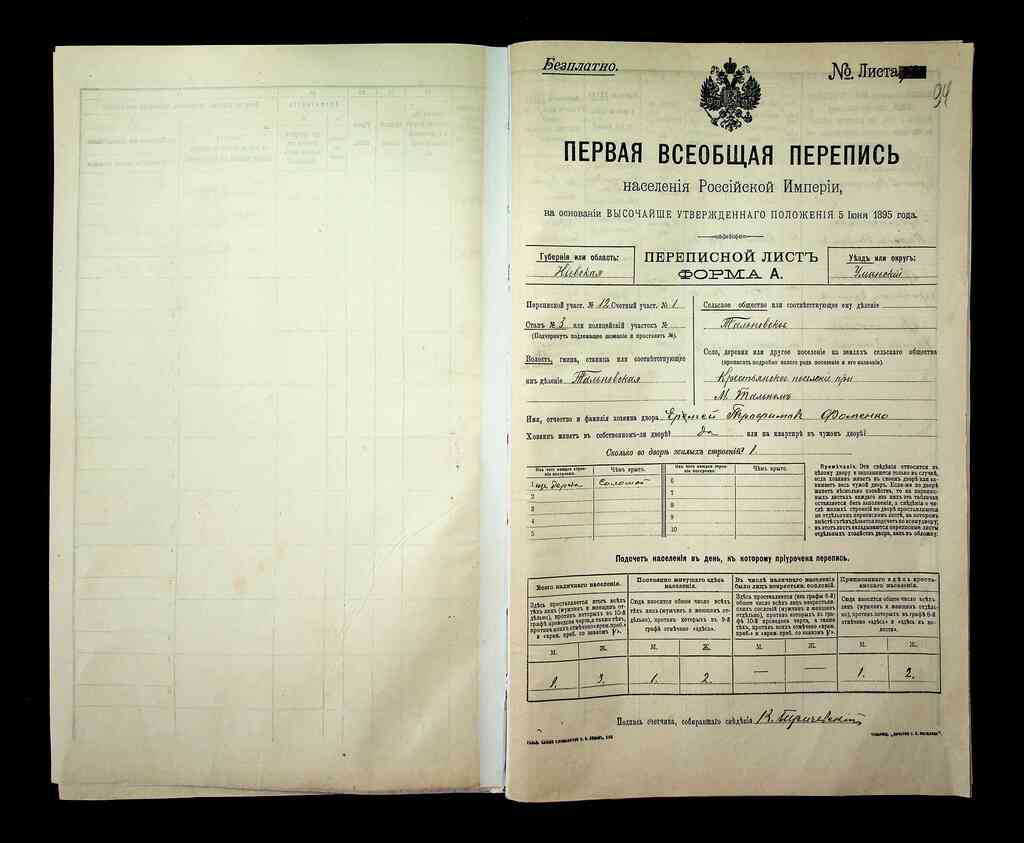 Безплатно.
№ Листа
94
ПЕРВАЯ ВСЕОБЩАЯ ПЕРЕПИСЬ
населенія Россійской Имперіи,
на основаніи ВЫСОЧАЙШЕ УТВЕРЖДЕННАГО ПОЛОЖЕНІЯ 5 Іюня 1895 года.
Губернія или область:
Кіевская
ПЕРЕПИСНОЙ ЛИСТЪ
ФОРМА А.
Уѣздъ или округъ:
Уманскій
Переписной участ. № 12 Счетный участ. № 1
Станъ № 3 или полицейскій участокъ №
(Подчеркнуть подлежащее названіе и проставить №).
Волость, гмина, станица или соотвѣтствующее
имъ дѣленіе Тальновская
Сельское общество или соотвѣтствующее ему дѣленіе
Тальновское
Село, деревня или другое поселеніе на земляхъ сельскаго общества
(прописать подробно какого рода поселеніе и его названіе).
Крестьянское поселеніе при
М. Тальномъ
Имя, отчество и фамилія хозяина двора Еремей Трофимовъ Фоменко
Хозяинъ живетъ въ собственномъ-ли дворѣ? да или на квартирѣ въ чужомъ дворѣ?
Сколько во дворѣ жилыхъ строеній? 1.
Изъ чего каждое строеніе построено.
Чѣмъ крыто.
Изъ чего каждое строеніе построено.
Чѣмъ крыто.
1 изъ дерева Соломой 6
2 7
3 8
4 9
5 10
Примѣчаніе. Эти свѣдѣнія относятся къ
цѣлому двору и заполняются только въ случаѣ,
если хозяинъ живетъ въ своемъ дворѣ или занимаетъ
весь чужой дворъ. Если-же во дворѣ
живетъ нѣсколько хозяйствъ, то на переписныхъ
листахъ каждаго изъ нихъ эта табличка
оставляется безъ заполненія, а свѣдѣнія о числѣ
жилыхъ строеній во дворѣ проставляются
на отдѣльномъ переписномъ листѣ, на которомъ
вмѣстѣ съ тѣмъ дѣлается подсчетъ по всему двору;
въ этотъ листъ вкладываются переписные листы
отдѣльныхъ хозяйствъ двора, какъ въ обложку.
Подсчетъ населенія въ день, къ которому пріурочена перепись.
Всего наличнаго населенія.
Постоянно живущаго здѣсь населенія.
Въ числѣ наличнаго населенія было лицъ некрестьян. сословій.
Приписаннаго здѣсь крестьянскаго населенія.
Здѣсь проставляется итогъ всѣхъ
тѣхъ лицъ (мужчинъ и женщинъ отдѣльно),
противъ которыхъ въ
графѣ 10-й проведена черта, а также тѣхъ,
противъ коихъ отмѣчено «врем. преб.»
и «врем. преб. со знакомъ V».
Сюда вносится общее число всѣхъ
тѣхъ лицъ (мужчинъ и женщинъ отдѣльно),
противъ которыхъ въ 9-й
графѣ отмѣчено «здѣсь».
Здѣсь проставляется (изъ графы 6-й)
общее число всѣхъ лицъ некрестьянскихъ
сословій (мужчинъ и женщинъ
отдѣльно), противъ которыхъ въ графѣ
10-й проведена черта, а также
тѣхъ, противъ коихъ отмѣчено «врем.
преб.» и «врем. преб. со знакомъ V».
Сюда вносится общее число всѣхъ
лицъ (мужчинъ и женщинъ отдѣльно),
противъ которыхъ въ графѣ 8-й
отмѣчено «здѣсь» и «здѣсь въ волости».
М. Ж. М. Ж. М. Ж. М. Ж.
1. 3. 1. 2. — — 1. 2.
Подпись счетчика, собиравшаго свѣдѣнія